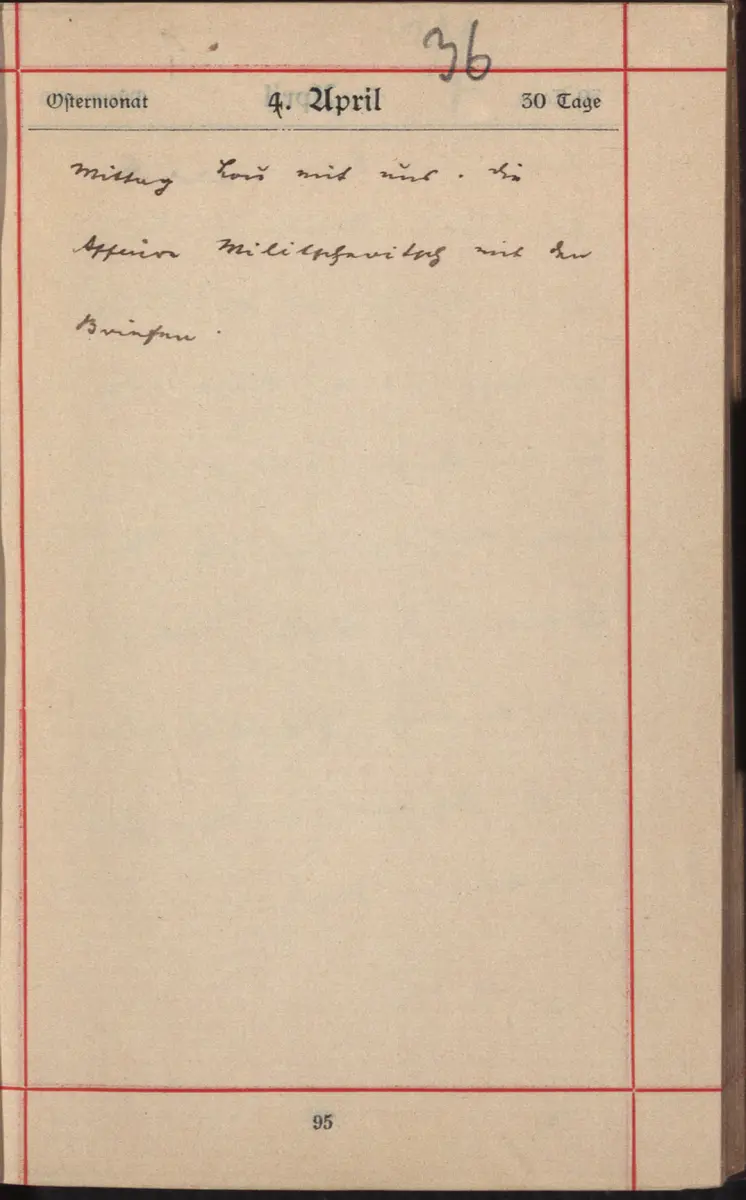 36
Ostermonat 4. April 30 Tage
Mittag Lou mit uns. die
Affaire Militschevitsch mit den
Briefen.
95